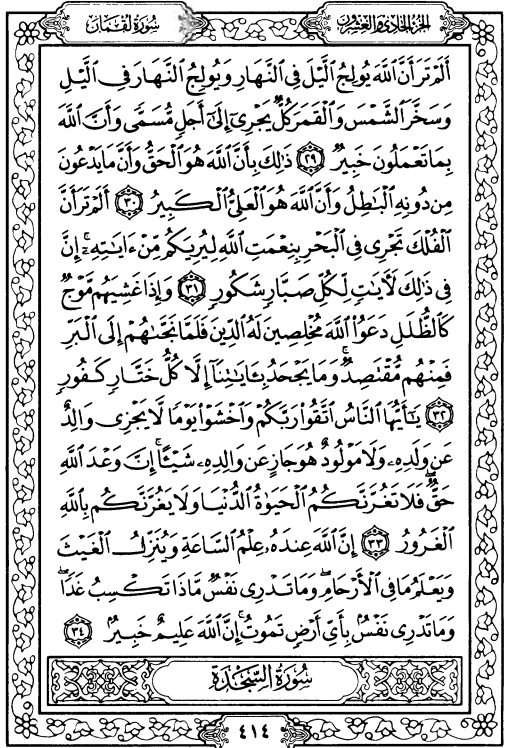 سُورَةُ لُقْمَان
الجُزْءُ الحَادِي وَالعِشْرُونَ
أَلَمْ تَرَ أَنَّ ٱللَّهَ يُولِجُ ٱلَّيْلَ فِى ٱلنَّهَارِ وَيُولِجُ ٱلنَّهَارَ فِى ٱلَّيْلِ
وَسَخَّرَ ٱلشَّمْسَ وَٱلْقَمَرَ كُلٌّ يَجْرِىٓ إِلَىٰٓ أَجَلٍ مُّسَمًّى وَأَنَّ ٱللَّهَ
بِمَا تَعْمَلُونَ خَبِيرٌ ٢٩ ذَٰلِكَ بِأَنَّ ٱللَّهَ هُوَ ٱلْحَقُّ وَأَنَّ مَا يَدْعُونَ
مِن دُونِهِ ٱلْبَٰطِلُ وَأَنَّ ٱللَّهَ هُوَ ٱلْعَلِىُّ ٱلْكَبِيرُ ٣٠ أَلَمْ تَرَ أَنَّ
ٱلْفُلْكَ تَجْرِى فِى ٱلْبَحْرِ بِنِعْمَتِ ٱللَّهِ لِيُرِيَكُم مِّنْ ءَايَٰتِهِۦٓ ۚ إِنَّ
فِى ذَٰلِكَ لَءَايَٰتٍ لِّكُلِّ صَبَّارٍ شَكُورٍ ٣١ وَإِذَا غَشِيَهُم مَّوْجٌ
كَٱلظُّلَلِ دَعَوُا۟ ٱللَّهَ مُخْلِصِينَ لَهُ ٱلدِّينَ فَلَمَّا نَجَّىٰهُمْ إِلَى ٱلْبَرِّ
فَمِنْهُم مُّقْتَصِدٌ ۚ وَمَا يَجْحَدُ بِـَٔايَٰتِنَآ إِلَّا كُلُّ خَتَّارٍ كَفُورٍ
٣٢ يَٰٓأَيُّهَا ٱلنَّاسُ ٱتَّقُوا۟ رَبَّكُمْ وَٱخْشَوْا۟ يَوْمًا لَّا يَجْزِى وَالِدٌ
عَن وَلَدِهِۦ وَلَا مَوْلُودٌ هُوَ جَازٍ عَن وَالِدِهِۦ شَيْـًٔا ۚ إِنَّ وَعْدَ ٱللَّهِ
حَقٌّ ۖ فَلَا تَغُرَّنَّكُمُ ٱلْحَيَوٰةُ ٱلدُّنْيَا وَلَا يَغُرَّنَّكُم بِٱللَّهِ
ٱلْغَرُورُ ٣٣ إِنَّ ٱللَّهَ عِندَهُۥ عِلْمُ ٱلسَّاعَةِ وَيُنَزِّلُ ٱلْغَيْثَ
وَيَعْلَمُ مَا فِى ٱلْأَرْحَامِ ۖ وَمَا تَدْرِى نَفْسٌ مَّاذَا تَكْسِبُ غَدًا ۖ
وَمَا تَدْرِى نَفْسٌۢ بِأَىِّ أَرْضٍ تَمُوتُ ۚ إِنَّ ٱللَّهَ عَلِيمٌ خَبِيرٌۢ ٣٤
سُورَةُ السَّجْدَةِ
٤١٤